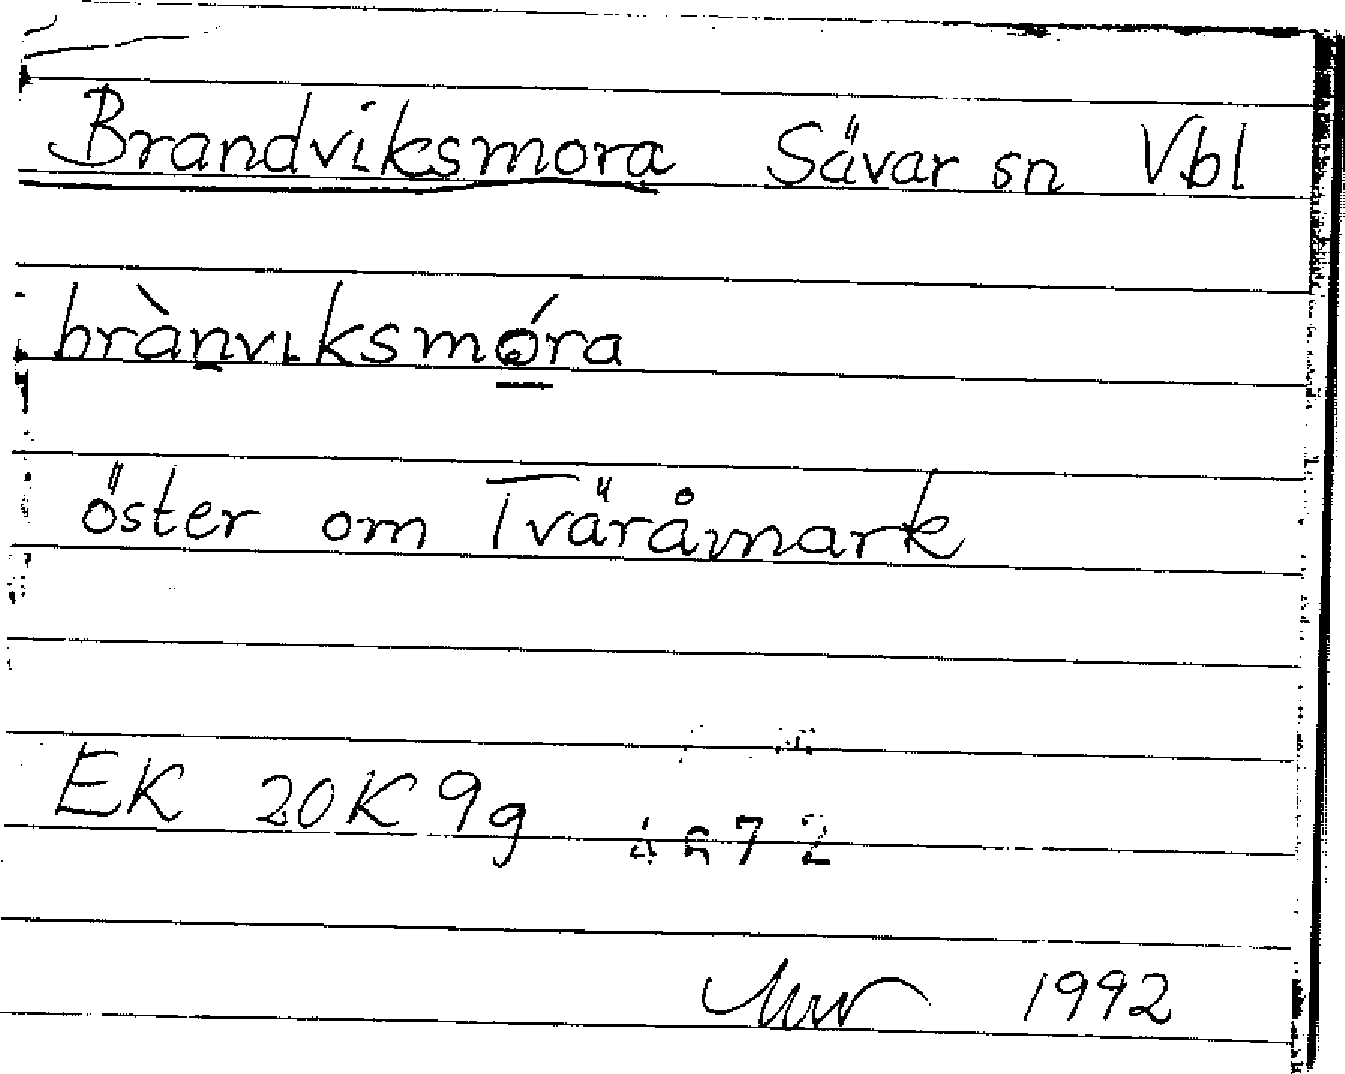 Brandviksmora Sävar sn Vbl
brànviksmóra
öster om Tväråmark
EK 20K 9g 4672
1992